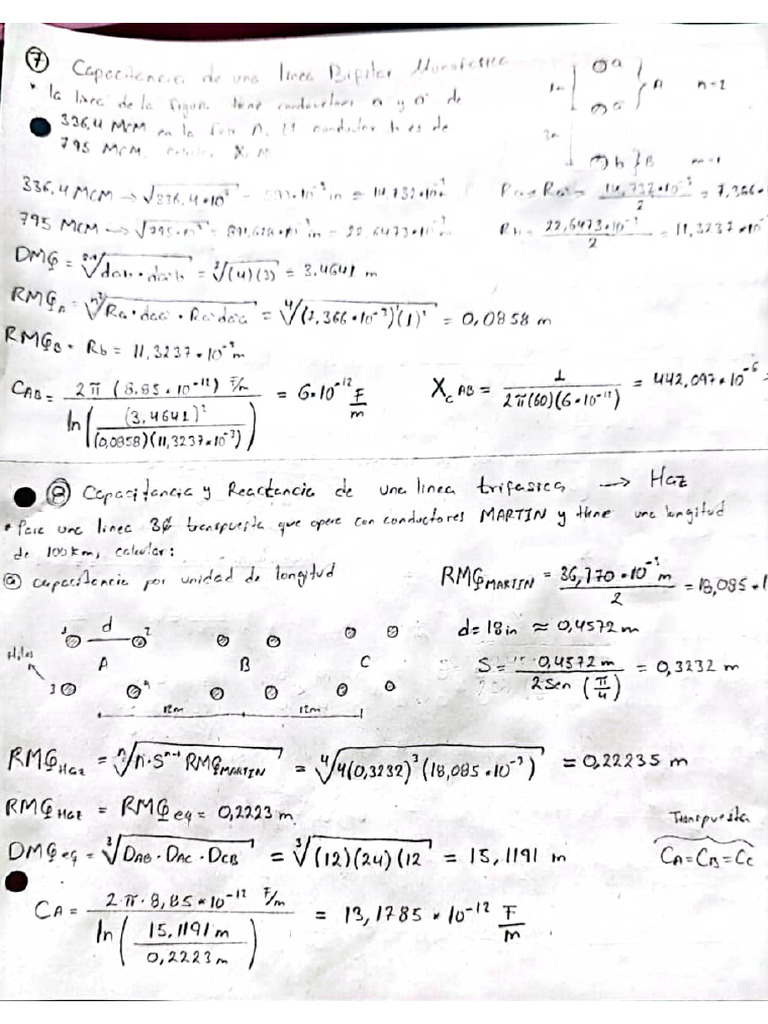 ⑦ Capacitancia de una linea Bipolar Monofasica
* la linea de la figura tiene conductores a y a' de
336,4 MCM en la fase A. El conductor b es de
795 MCM.
1m a a' } A n=2
3m b } B m=1
336,4 MCM → √336,4*10³ = in = 14,732*10⁻³
795 MCM → √795*10³ = in = 22,6473*10⁻³
Ra = Ra' = 14,732*10⁻³ / 2 = 7,366*
Rb = 22,6473*10⁻³ / 2 = 11,3237*10
DMG = √dab · da'b = ²√(4)(3) = 3.4641 m
RMG_A = √Ra · daa' · Ra' da'a = ⁴√(7,366*10⁻³)²(1)² = 0,0858 m
RMG_B = Rb = 11,3237*10⁻³ m
C_AB = 2π (8.85*10⁻¹²) F/m / ln((3.4641)² / (0,0858)(11,3237*10⁻³)) = 6*10⁻¹² F/m
X_C AB = 1 / 2π(60)(6*10⁻¹²) = 442,097*10⁻⁶
⑧ Capacitancia y Reactancia de una linea trifasica → Haz
* Para una linea 3Ø transpuesta que opere con conductores MARTIN y tiene una longitud
de 100km, calcular:
ⓐ capacitancia por unidad de longitud
RMG_MARTIN = 36,170*10⁻³ m / 2 = 18,085*1
d = 18in ≈ 0,4572 m
S = 0,4572 m / 2 Sen (π/4) = 0,3232 m
1 d 2
Hilos A B C
3 4
12m 12m
RMG_Haz = ⁿ√n·Sⁿ⁻¹ RMG_MARTIN = ⁴√4(0,3232)³(18,085*10⁻³) = 0,22235 m
RMG_Haz = RMG_eq = 0,2223 m
DMG_eq = ³√D_AB · D_AC · D_CB = ³√(12)(24)(12 = 15,1191 m
Transpuesta
C_A = C_B = C_C
C_A = 2·π·8,85*10⁻¹² F/m / ln(15,1191 m / 0,2223 m) = 13,1785*10⁻¹² F/m